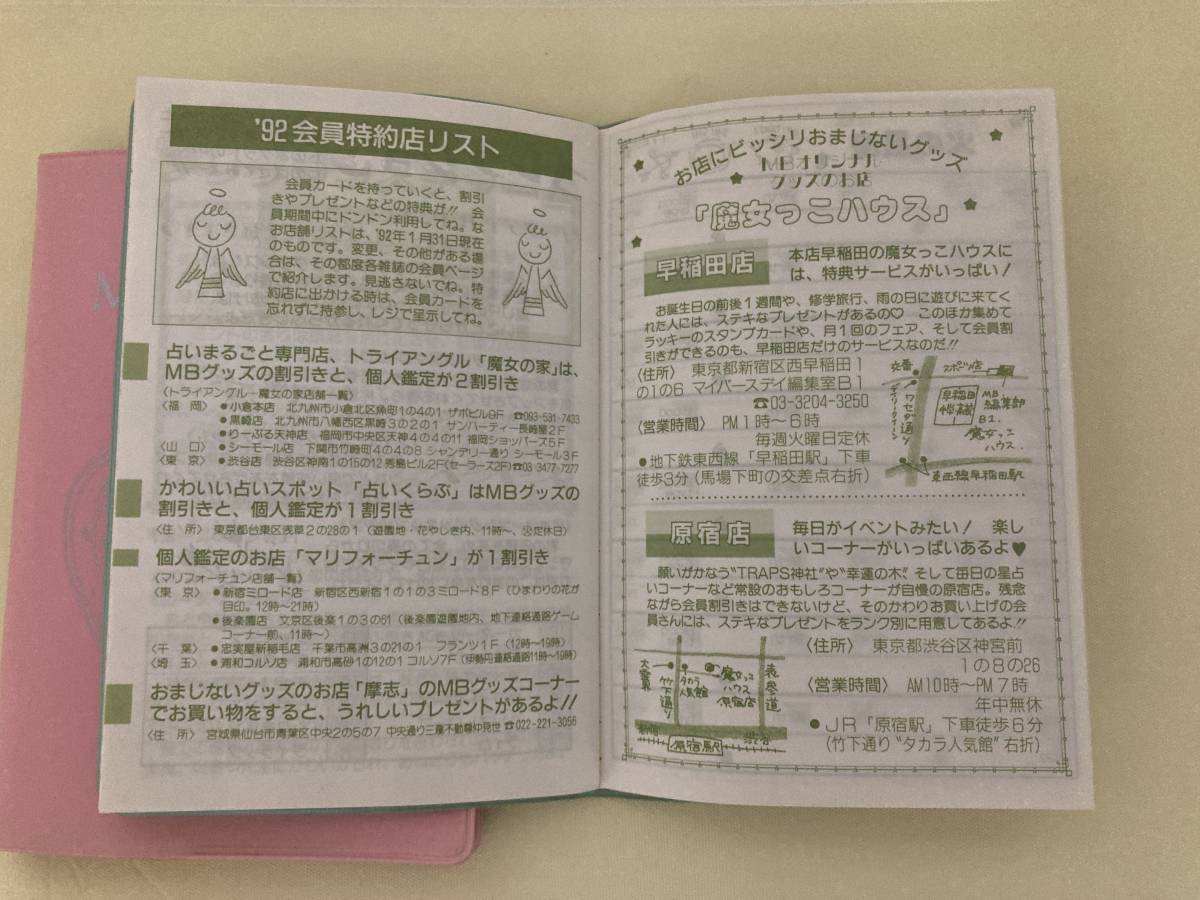 '92会員特約店リスト
会員カードを持っていくと、割引
きやプレゼントなどの特典が!! 会
員期間中にドンドン利用してね。な
お店舗リストは、'92年1月31日現在
のものです。変更、その他がある場
合は、その都度各雑誌の会員ページ
で紹介します。見逃さないでね。特
約店に出かける時は、会員カードを
忘れずに持参し、レジで呈示してね。
占いまるごと専門店、トライアングル「魔女の家」は、
MBグッズの割引きと、個人鑑定が2割引き
〈トライアングル-魔女の家店舗一覧〉
〈福 岡〉 ●小倉本店 北九州市小倉北区魚町1の4の1 ザボビル9F ☎093-531-7433
●黒崎店 北九州市八幡西区黒崎3の2の1 サンハーティー長崎屋2F
●りーぶる天神店 福岡市中央区天神4の4の11 福岡ショッパーズ5F
〈山 口〉 ●シーモール店 下関市竹崎町4の4の8 シャンデリー通り シーモール3F
〈東 京〉 ●渋谷店 渋谷区神南1の15の12 秀島ビル2F(セーラーズ2F)☎03-3477-7277
かわいい占いスポット「占いくらぶ」はMBグッズの
割引きと、個人鑑定が1割引き
〈住 所〉 東京都台東区浅草2の28の1(遊園地・花やしき内、11時〜、定休日)
個人鑑定のお店「マリフォーチュン」が1割引き
〈マリフォーチュン店舗一覧〉
〈東 京〉 ●新宿ミロード店 新宿区西新宿1の1の3ミロード8F(ひまわりの花が
目印。12時〜21時)
●後楽園店 文京区後楽1の3の61(後楽園遊園地内、地下連絡通路ゲーム
コーナー前、11時〜)
〈千 葉〉 ●忠実屋新稲毛店 千葉市高洲3の21の1 フランツ1F(12時〜19時)
〈埼 玉〉 ●浦和コルソ店 浦和市高砂1の12の1 コルソ7F(伊勢丹連絡通路11時〜19時)
おまじないグッズのお店「摩志」のMBグッズコーナー
でお買い物をすると、うれしいプレゼントがあるよ!!
〈住 所〉 宮城県仙台市青葉区中央2の5の7 中央通り三瀧不動尊仲見世 ☎022-221-3056
お店にビッシリおまじないグッズ
MBオリジナル
グッズのお店
「魔女っこハウス」
早稲田店
本店早稲田の魔女っこハウスに
は、特典サービスがいっぱい!
お誕生日の前後1週間や、修学旅行、雨の日に遊びに来てく
れた人には、ステキなプレゼントがあるの♡ このほか集めて
ラッキーのスタンプカードや、月1回のフェア、そして会員割
引きができるのも、早稲田店だけのサービスなのだ!!
〈住所〉 東京都新宿区西早稲田1
の1の6 マイバースデイ編集室B1
☎03-3204-3250
〈営業時間〉 PM1時〜6時
毎週火曜日定休
●地下鉄東西線「早稲田駅」下車
徒歩3分(馬場下町の交差点右折)
交番
スポーツ店
ワセダ通り
MB
編集部
B1.
魔女っこ
ハウス.
東西線早稲田駅
原宿店
毎日がイベントみたい! 楽し
いコーナーがいっぱいあるよ♥
願いがかなう"TRAPS神社"や"幸運の木"、そして毎日の星占
いコーナーなど常設のおもしろコーナーが自慢の原宿店。残念
ながら会員割引きはできないけど、そのかわりお買い上げの会
員さんには、ステキなプレゼントをランク別に用意してあるよ!!
〈住所〉 東京都渋谷区神宮前
1の8の26
〈営業時間〉 AM10時〜PM7時
年中無休
●JR「原宿駅」下車徒歩6分
(竹下通り"タカラ人気館"右折)
竹下通り
タカラ
人気館
魔女っこ
ハウス
原宿店
表参道
新宿
渋谷
原宿駅